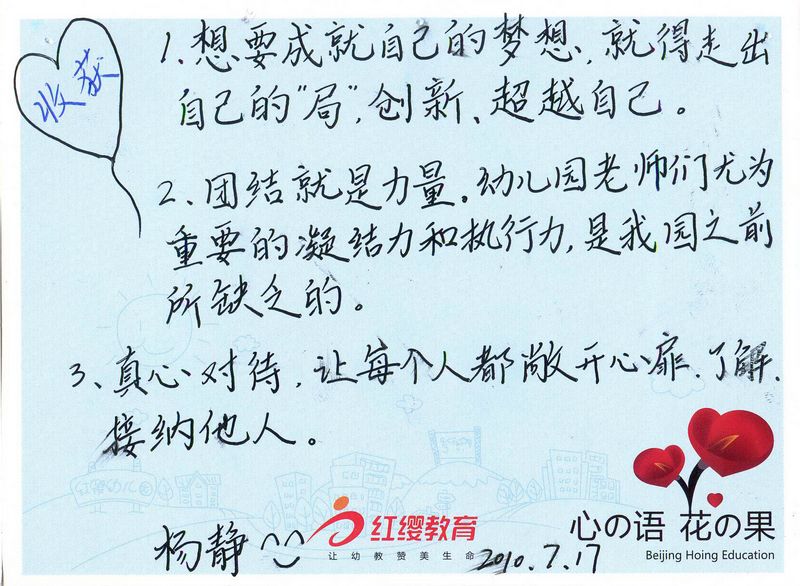 收获
1.想要成就自己的梦想,就得走出
自己的"局",创新、超越自己。
2.团结就是力量。幼儿园老师们尤为
重要的凝结力和执行力,是我园之前
所缺乏的。
3、真心对待,让每个人都敞开心扉、了解、
接纳他人。
红缨幼儿园
杨静
红缨教育
让幼教赞美生命
2010.7.17
心の语 花の果
Beijing Hoing Education